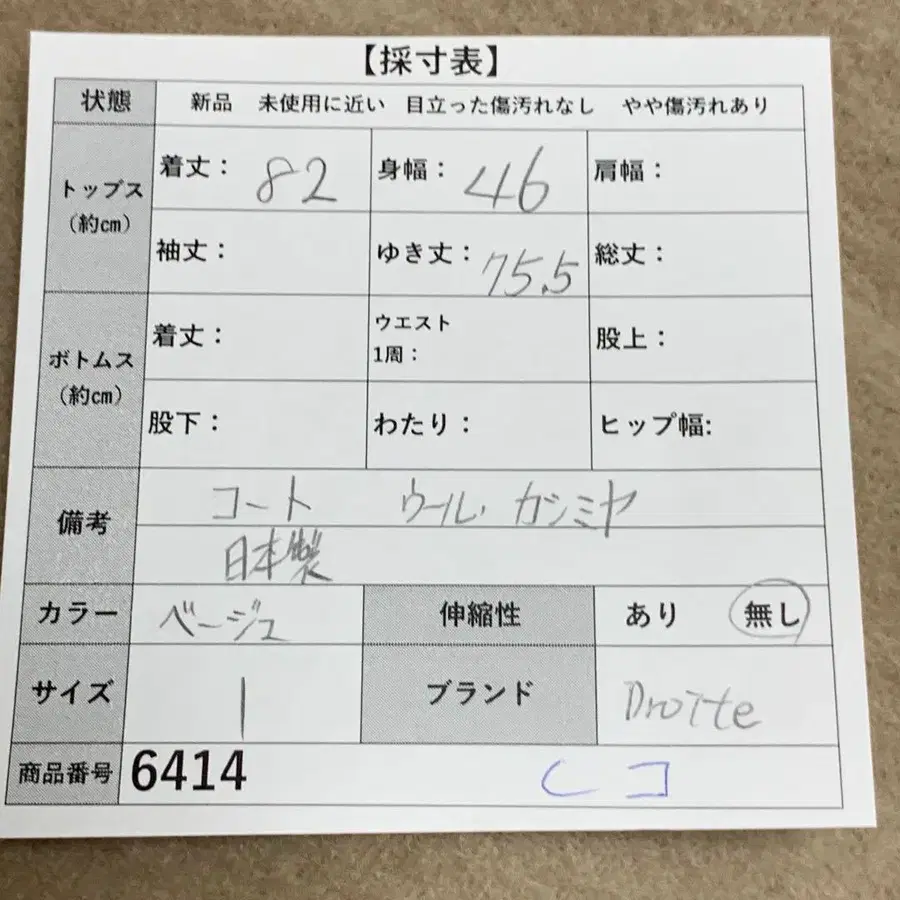 【採寸表】
状態 新品 未使用に近い 目立った傷汚れなし やや傷汚れあり
トップス（約㎝） 着丈： 82 身幅： 46 肩幅：
袖丈： ゆき丈： 75.5 総丈：
ボトムス（約㎝） 着丈： ウエスト1周： 股上：
股下： わたり： ヒップ幅:
備考 コート ウール. カシミヤ
日本製
カラー ベージュ 伸縮性 あり 無し
サイズ 1 ブランド Droite
商品番号 6414